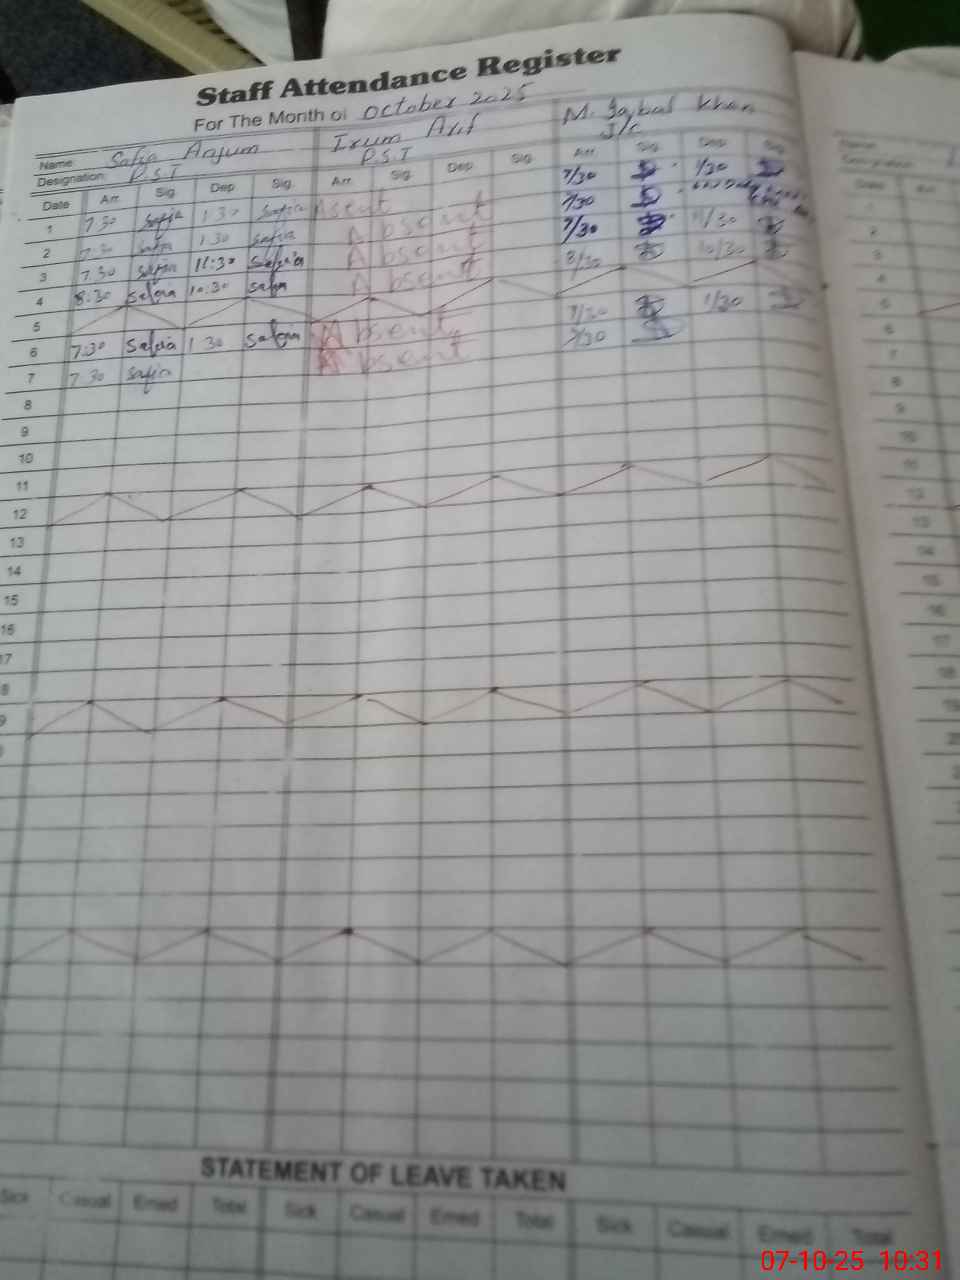 Staff Attendance Register
For The Month of October 2025
Name Safia Anjum Irum Arif M. Iqbal Khan
Designation: P.S.T P.S.T J/C
Date Arr. Sig. Dep Sig. Arr. Sig. Dep Sig. Arr Sig. Dep Sig
1 7.30 Safia 1.30 Safia Absent 7/30 1/30
2 7.30 Safia 1.30 Safia Absent 7/30
3 7.30 Safia 11:30 Safia Absent 7/30 11/30
4 8:30 Safia 10:30 Safia Absent 8/30 10/30
5
6 7:30 Safia 1 30 Safia Absent 7/30 1/30
7 7 30 Safia Absent 7/30
8
9
10
11
12
13
14
15
16
17
8
9
STATEMENT OF LEAVE TAKEN
Sick Casual Erned Total Sick Casual Erned Total Sick Casual Erned Total
07-10-25 10:31